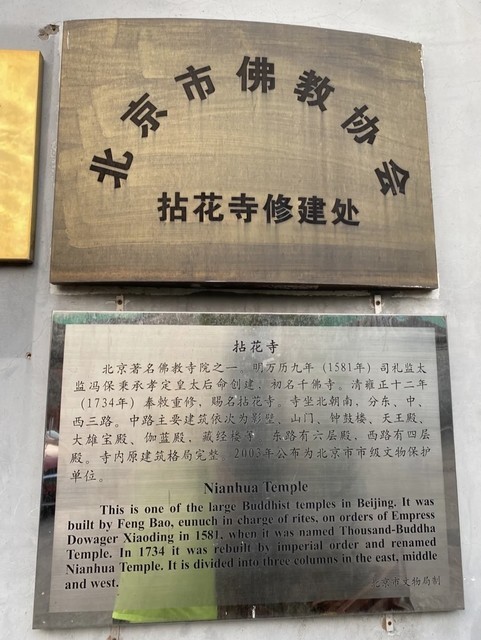 北京市佛教协会
拈花寺修建处
拈花寺
北京著名佛教寺院之一。明万历九年（1581年）司礼监太
监冯保秉承孝定皇太后命创建，初名千佛寺。清雍正十二年
（1734年）奉敕重修，赐名拈花寺。寺坐北朝南，分东、中、
西三路。中路主要建筑依次为影壁、山门、钟鼓楼、天王殿、
大雄宝殿、伽蓝殿，藏经楼等。东路有六层殿，西路有四层
殿。寺内原建筑格局完整。2003年公布为北京市市级文物保护
单位。
Nianhua Temple
This is one of the large Buddhist temples in Beijing. It was
built by Feng Bao, eunuch in charge of rites, on orders of Empress
Dowager Xiaoding in 1581, when it was named Thousand-Buddha
Temple. In 1734 it was rebuilt by imperial order and renamed
Nianhua Temple. It is divided into three columns in the east, middle
and west.
北京市文物局制